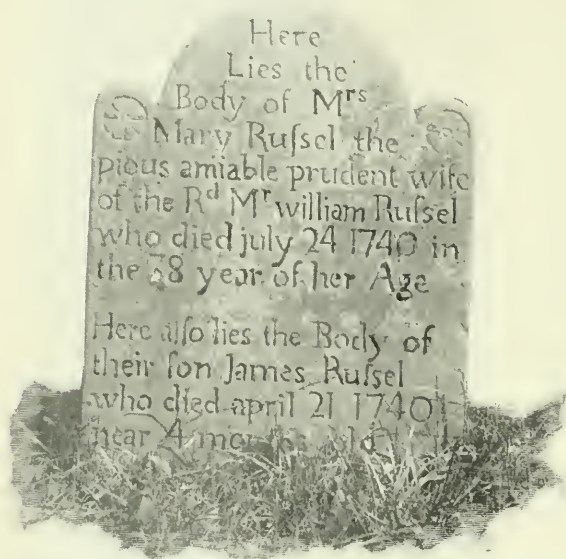 Here
Lies the
Body of Mrs
Mary Ruſsel the
pious amiable prudent wife
of the Rd Mr william Ruſsel
who died july 24 1740 in
the year of her Age
Here alſo lies the Body of
their ſon James Ruſsel
who died april 21 1740
near 4 months old